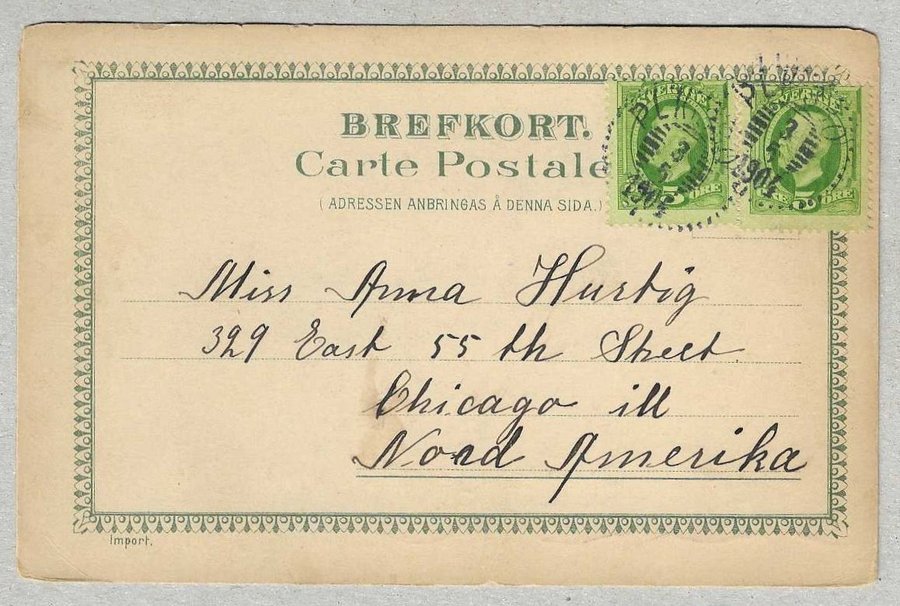 BREFKORT.
Carte Postale
( ADRESSEN ANBRINGAS Å DENNA SIDA.)
Miss Anna Hurtig
329 East 55 th Street
Chicago ill
Nord Amerika
Import.